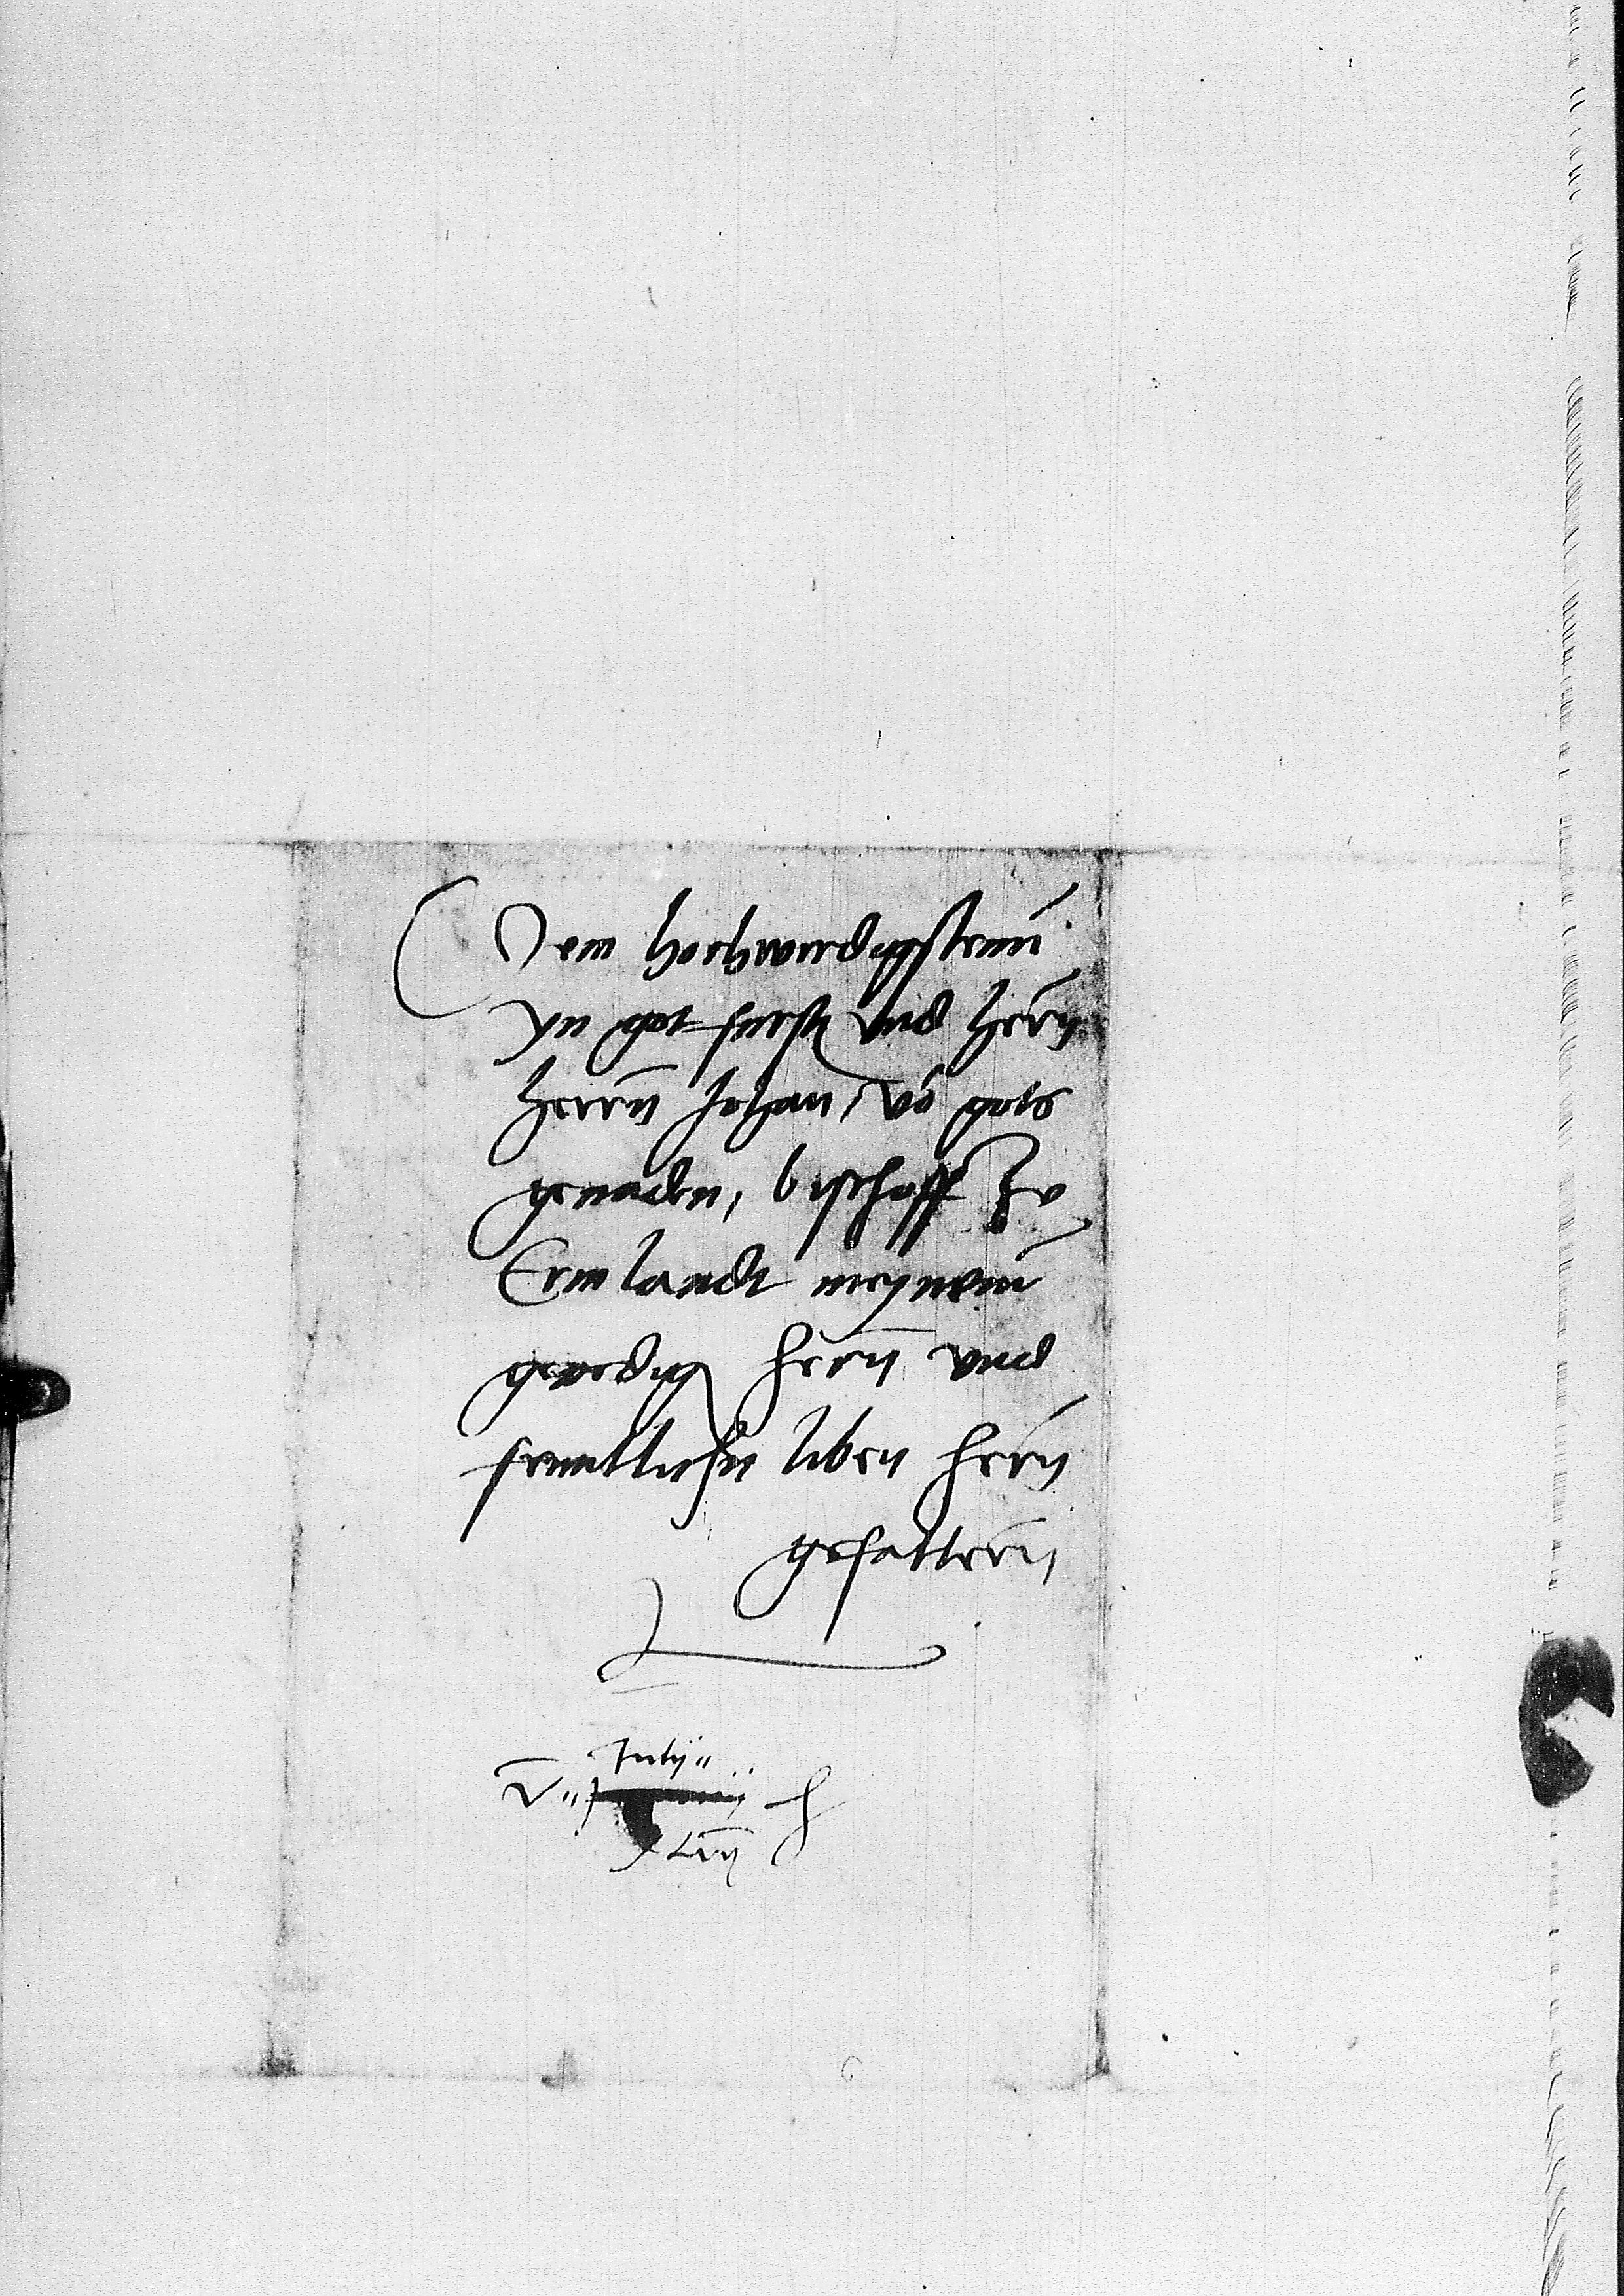 Dem hochwurdigsten
yn got furst vnd hern
herrn Johan, vo gots
genaden, bischoff zu
Ermlandt meynem
genedig hern vnd
freuntlichn liben hern
gefattern
July
V
XLVII